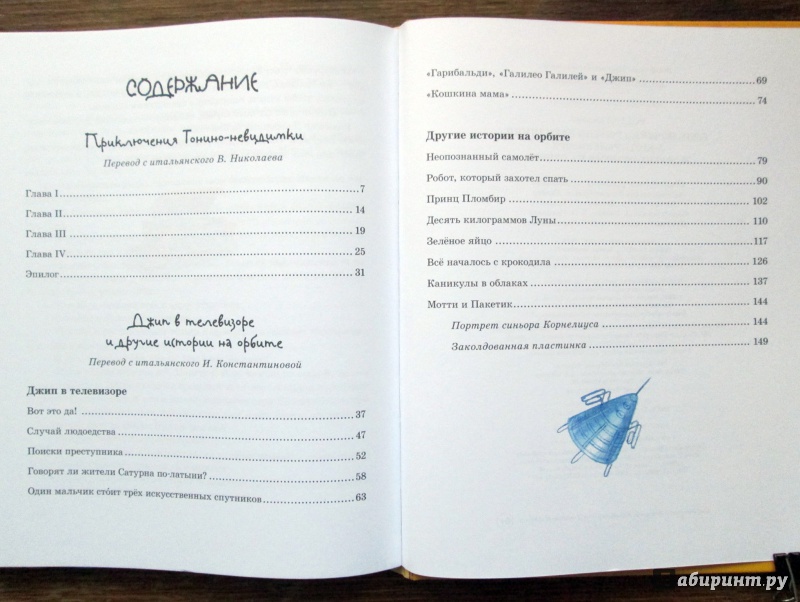 СОДЕРЖАНИЕ
Приключения Тонино-невидимки
Перевод с итальянского В. Николаева
Глава I 7
Глава II 14
Глава III 19
Глава IV 25
Эпилог 31
Джип в телевизоре
и другие истории на орбите
Перевод с итальянского И. Константиновой
Джип в телевизоре
Вот это да! 37
Случай людоедства 47
Поиски преступника 52
Говорят ли жители Сатурна по-латыни? 58
Один мальчик сто́ит трёх искусственных спутников 63
«Гарибальди», «Галилео Галилей» и «Джип» 69
«Кошкина мама» 74
Другие истории на орбите
Неопознанный самолёт 79
Робот, который захотел спать 90
Принц Пломбир 102
Десять килограммов Луны 110
Зелёное яйцо 117
Всё началось с крокодила 126
Каникулы в облаках 137
Мотти и Пакетик 144
Портрет синьора Корнелиуса 144
Заколдованная пластинка 149
абиринт.ру